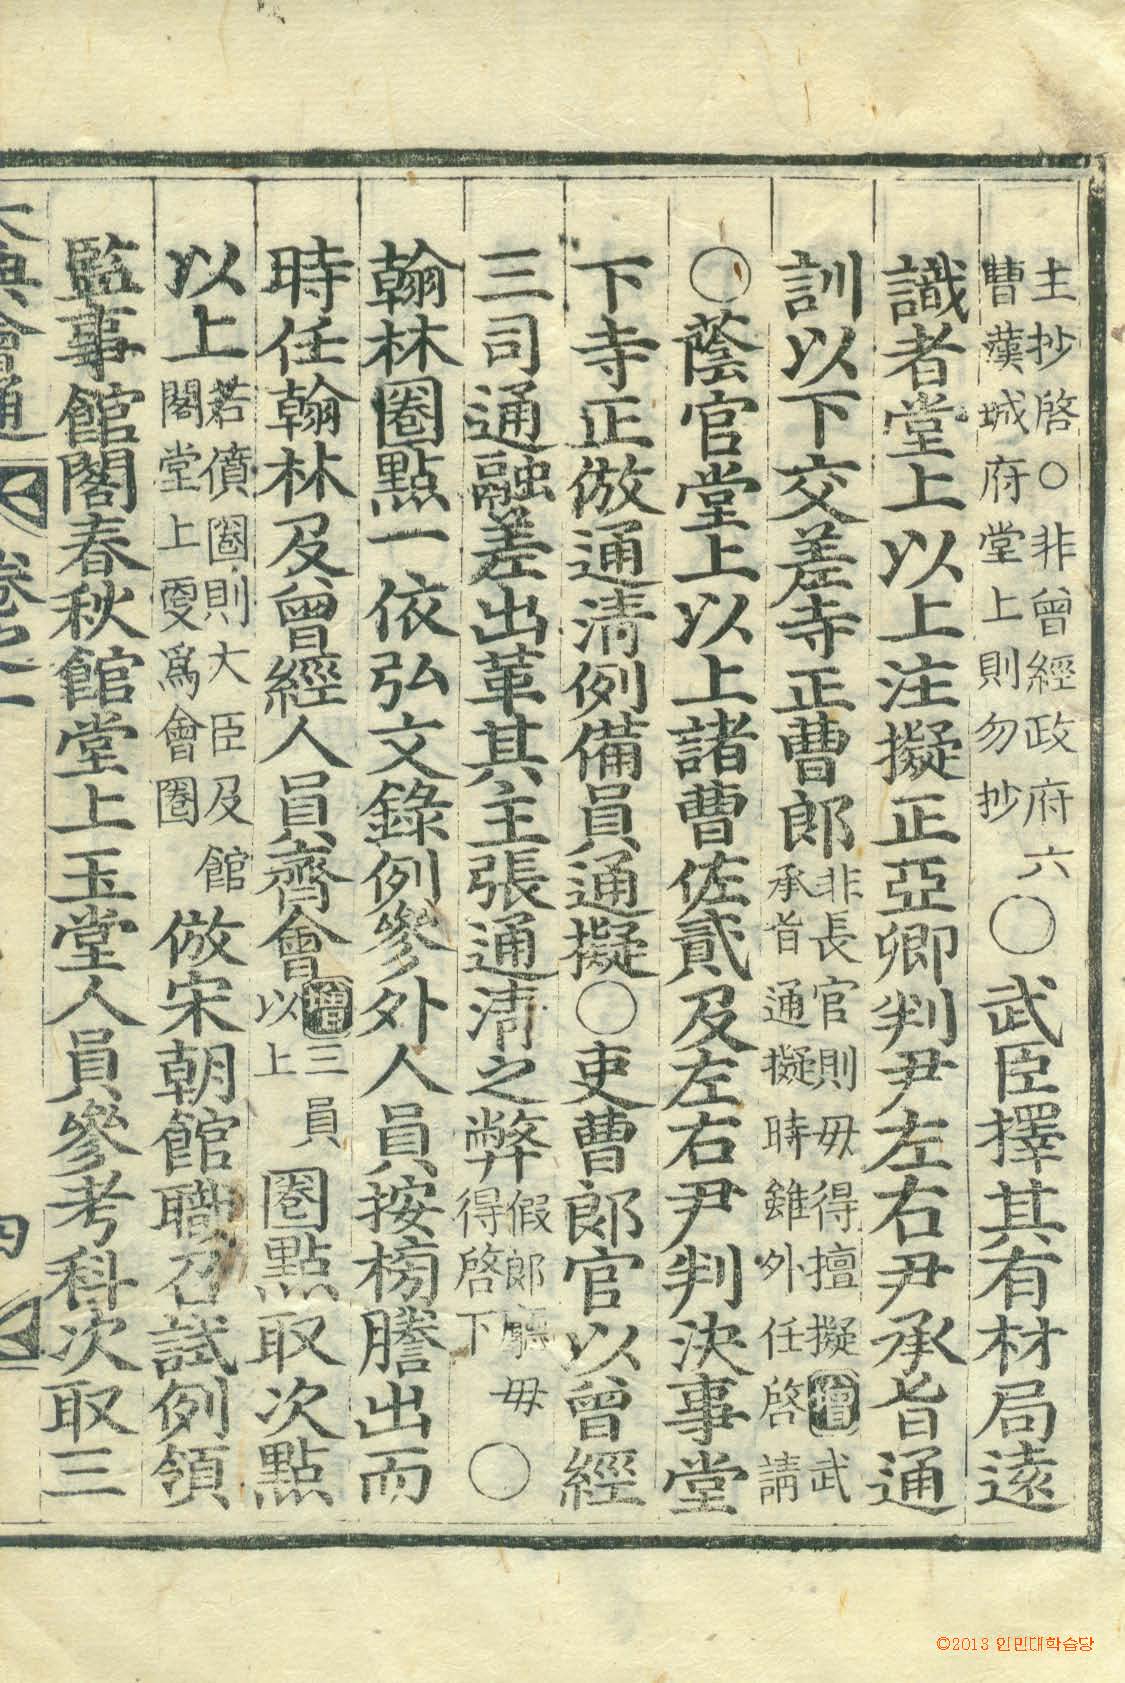 主抄啓○非曾經政府六
曹漢城府堂上則勿抄
○武臣擇其有材局遠
識者堂上以上注擬正亞卿判尹左右尹承旨通
訓以下交差寺正曹郞
非長官則毋得擅擬增武
承旨通擬時雖外任啓請
○蔭官堂上以上諸曹佐貳及左右尹判決事堂
下寺正倣通淸例備員通擬○吏曹郞官以曾經
三司通融差出革其主張通淸之弊
假郞廳毋
得啓下
○
翰林圈點一依弘文錄例參外人員按榜謄出而
時任翰林及曾經人員齊會
增三員
以上
圈點取次點
以上
若僨圈則大臣及館
閣堂上更爲會圈
倣宋朝館職召試例領
監事館閣春秋館堂上玉堂人員參考科次取三
大典會通
卷之一
四
©2013 인민대학습당